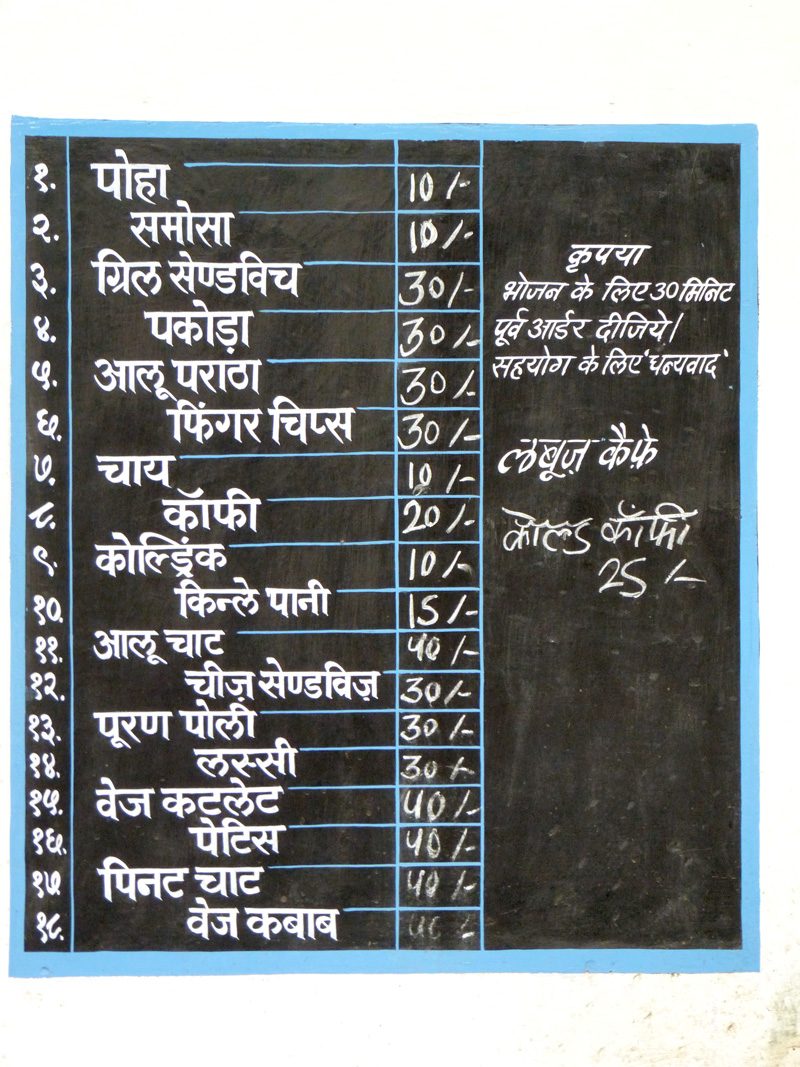 १. पोहा 10/-
२. समोसा 10/-
३. ग्रिल सेण्डविच 30/-
४. पकोड़ा 30/-
५. आलू पराठा 30/-
६. फिंगर चिप्स 30/-
७. चाय 10/-
८. कॉफी 20/-
९. कोल्ड्रिंक 10/-
१०. किन्ले पानी 15/-
११. आलू चाट 40/-
१२. चीज़ सेण्डविज़ 30/-
१३. पूरण पोली 30/-
१४. लस्सी 30/-
१५. वेज कटलेट 40/-
१६. पेटिस 40/-
१७ पिनट चाट 40/-
१८. वेज कबाब
कृपया
भोजन के लिए 30 मिनिट
पूर्व आर्डर दीजिये।
सहयोग के लिए 'धन्यवाद'
लबूज़ कैफ़े
कोल्ड कॉफी
25/-